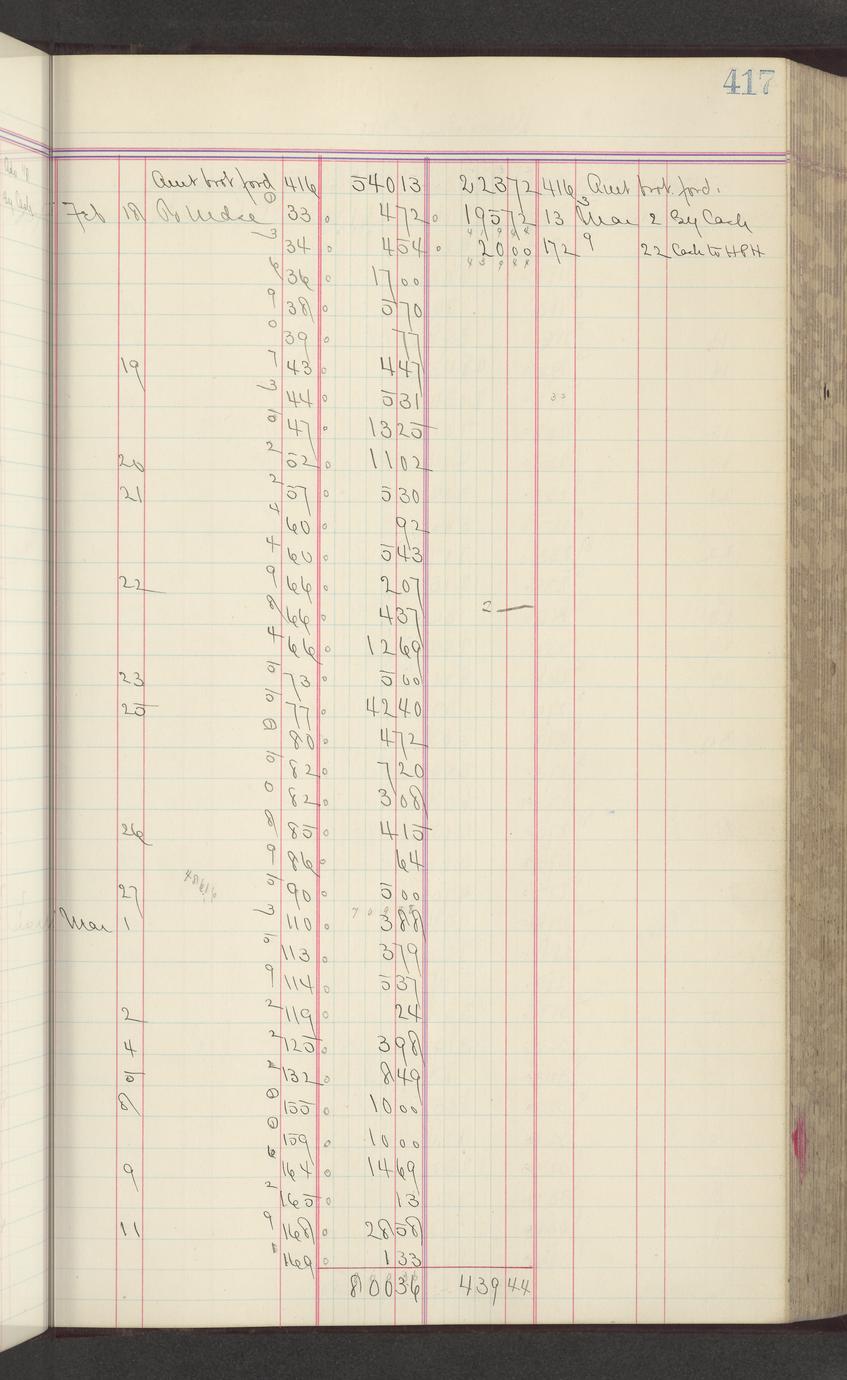 417
Amt brot ford 416 540 13 223 72 416 Amt brot. ford.
Feb 18 To Mdse 33 4 72 195 72 13 Mar 2 By Cash
34 4 54 20 00 172 22 Cash to HPH
36 17 00
38 5 70
39 77
19 43 4 47
44 5 31
47 13 25
20 52 11 02
21 57 5 30
60 92
60 5 43
22 66 2 07
66 4 37 2 —
66 12 69
23 73 5 00
25 77 42 40
80 4 72
82 7 20
82 3 08
26 85 4 15
86 64
27 90 5 00
Mar 1 110 3 88
113 3 79
114 5 37
2 119 24
4 125 3 98
5 132 8 49
8 155 10 00
159 10 00
9 164 14 69
165 13
11 168 28 58
169 1 33
800 36 439 44